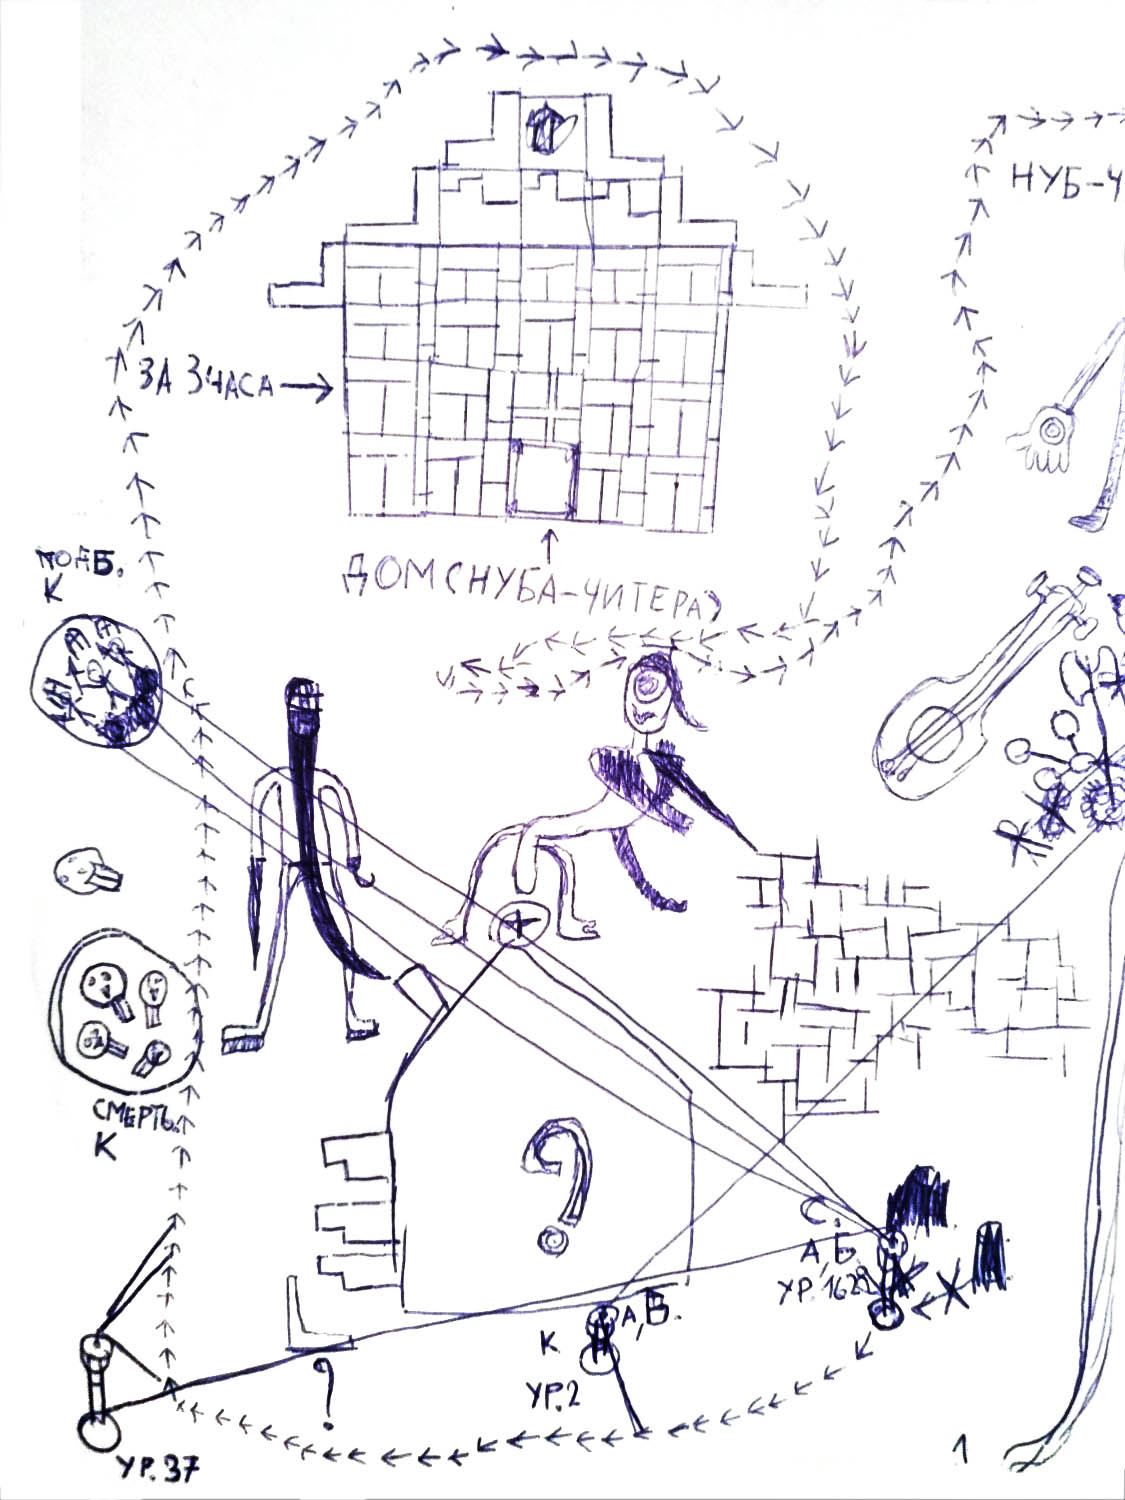 НУБ-Ч
ЗА 3 ЧАСА
ДОМ (НУБА-ЧИТЕРА)
К
СМЕРТЬ.
К
?
С.
А,Б
УР.1622
А,Б.
К
УР.2
?
УР.37
1